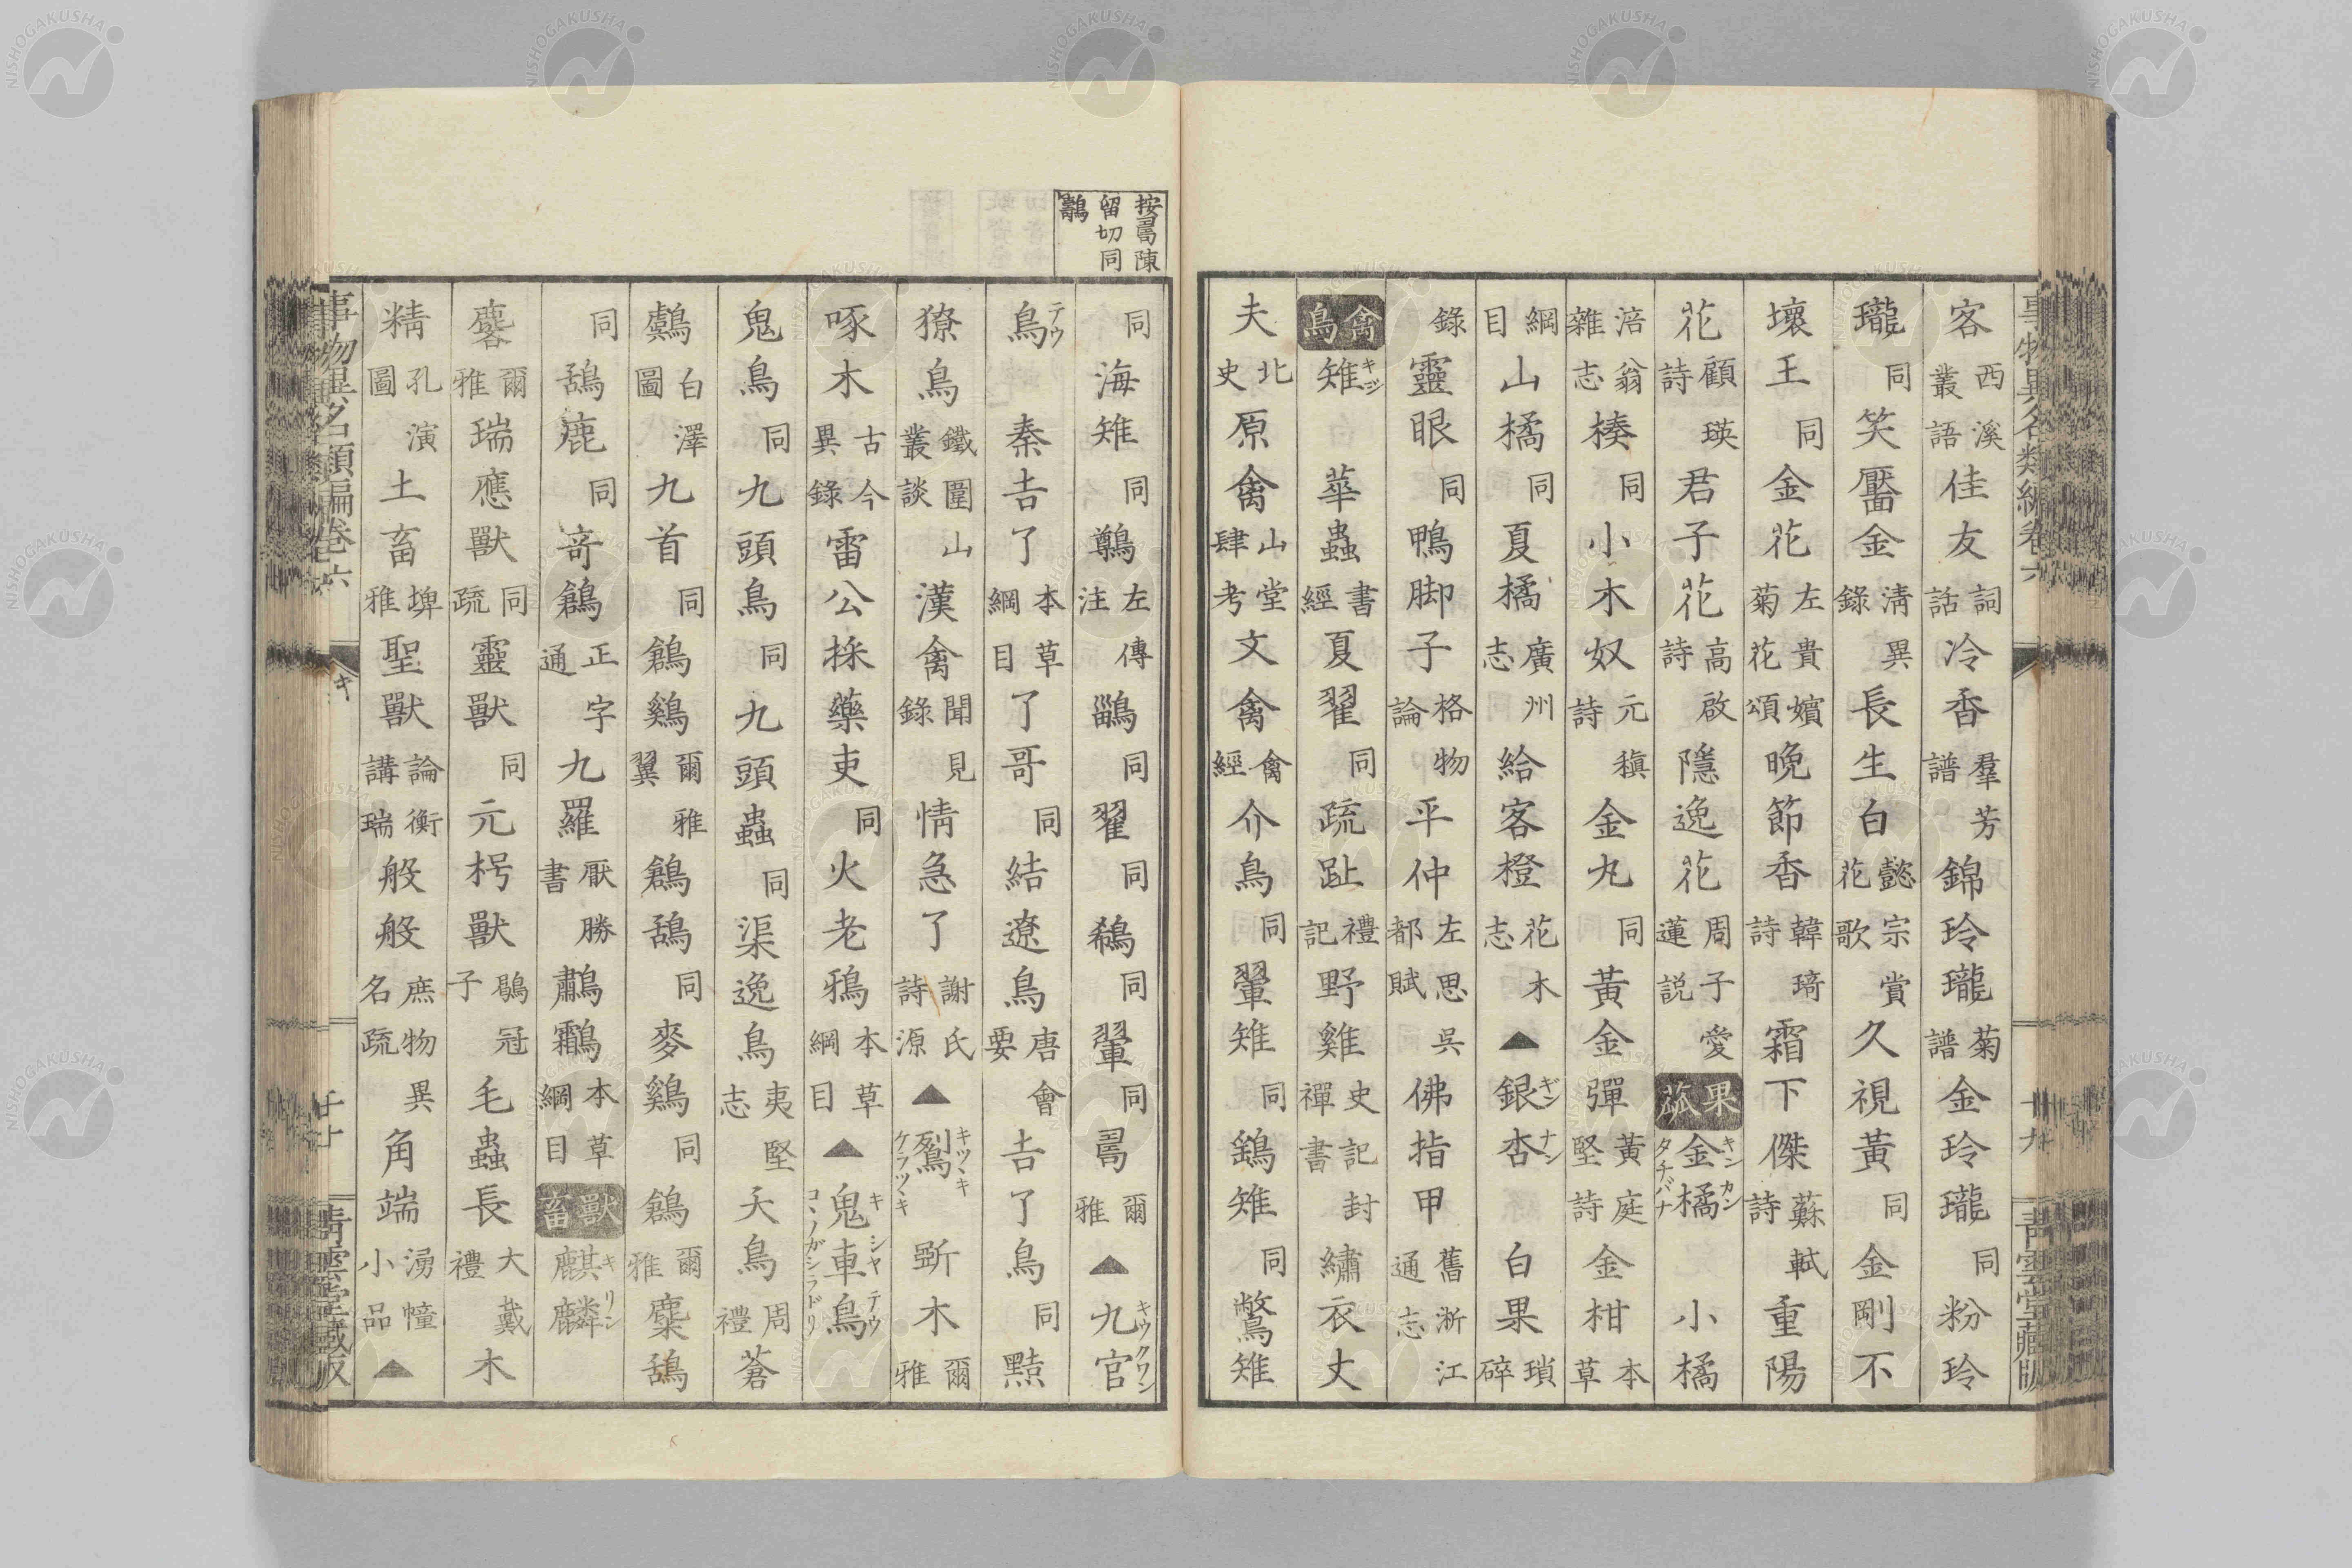 事物異名類編卷六 十九 青雲堂藏版
客西溪叢語佳友詞話冷香羣芳譜錦玲瓏菊譜金玲瓏同粉玲
瓏同笑靨金清異錄長生白懿宗賞花歌久視黃同金剛不
壞王同金花左貴嬪菊花頌晚節香韓琦詩霜下傑蘇軾詩重陽
花顧瑛詩君子花高啟詩隱逸花周子愛蓮説果蓏金橘キンカンタチバナ小橘
涪翁雜志楱同小木奴元稹詩金丸同黃金彈黃庭堅詩金柑本草
綱目山橘同夏橘廣州志給客橙花木志▲銀杏ギンナン白果瑣碎
錄靈眼同鴨脚子格物論平仲左思吳都賦佛指甲舊淅江通志
禽鳥雉キジ華蟲書經夏翟同疏趾禮記野雞史記封禪書繡衣丈
夫北史原禽山堂肆考文禽禽經介鳥同翬雉同鷂雉同鷩雉
按陳
留切同
同海雉同鷷左傳注鶅同翟同鵗同翬同爾雅▲九官キウクワン
鳥テウ秦吉了本草綱目了哥同結遼鳥唐會要吉了鳥同㸃
獠鳥鐵圍山叢談漢禽聞見錄情急了謝氏詩源▲鴷キツヽキケラツヽキ斲木爾雅
啄木古今異錄雷公採藥吏同火老鴉本草綱目▲鬼車鳥キシヤテウコヽノガシラドリ
鬼鳥同九頭鳥同九頭蟲同渠逸鳥夷堅志夭鳥周禮蒼
鸆白澤圖九首同鶬鷄爾雅翼鶬鴰同麥鷄同鶬爾雅麋鴰
同鴰鹿同奇鶬正字通九羅厭勝書鷫鸘本草綱目獸畜麒麟キリン
麐爾雅瑞應獸同疏靈獸同元枵獸鶡冠子毛蟲長大戴禮木
精孔演圖土畜埤雅聖獸論衡講瑞般般庶物異名疏角端湧幢小品▲
事物異名類編卷六 キ 二十 青雲堂藏版